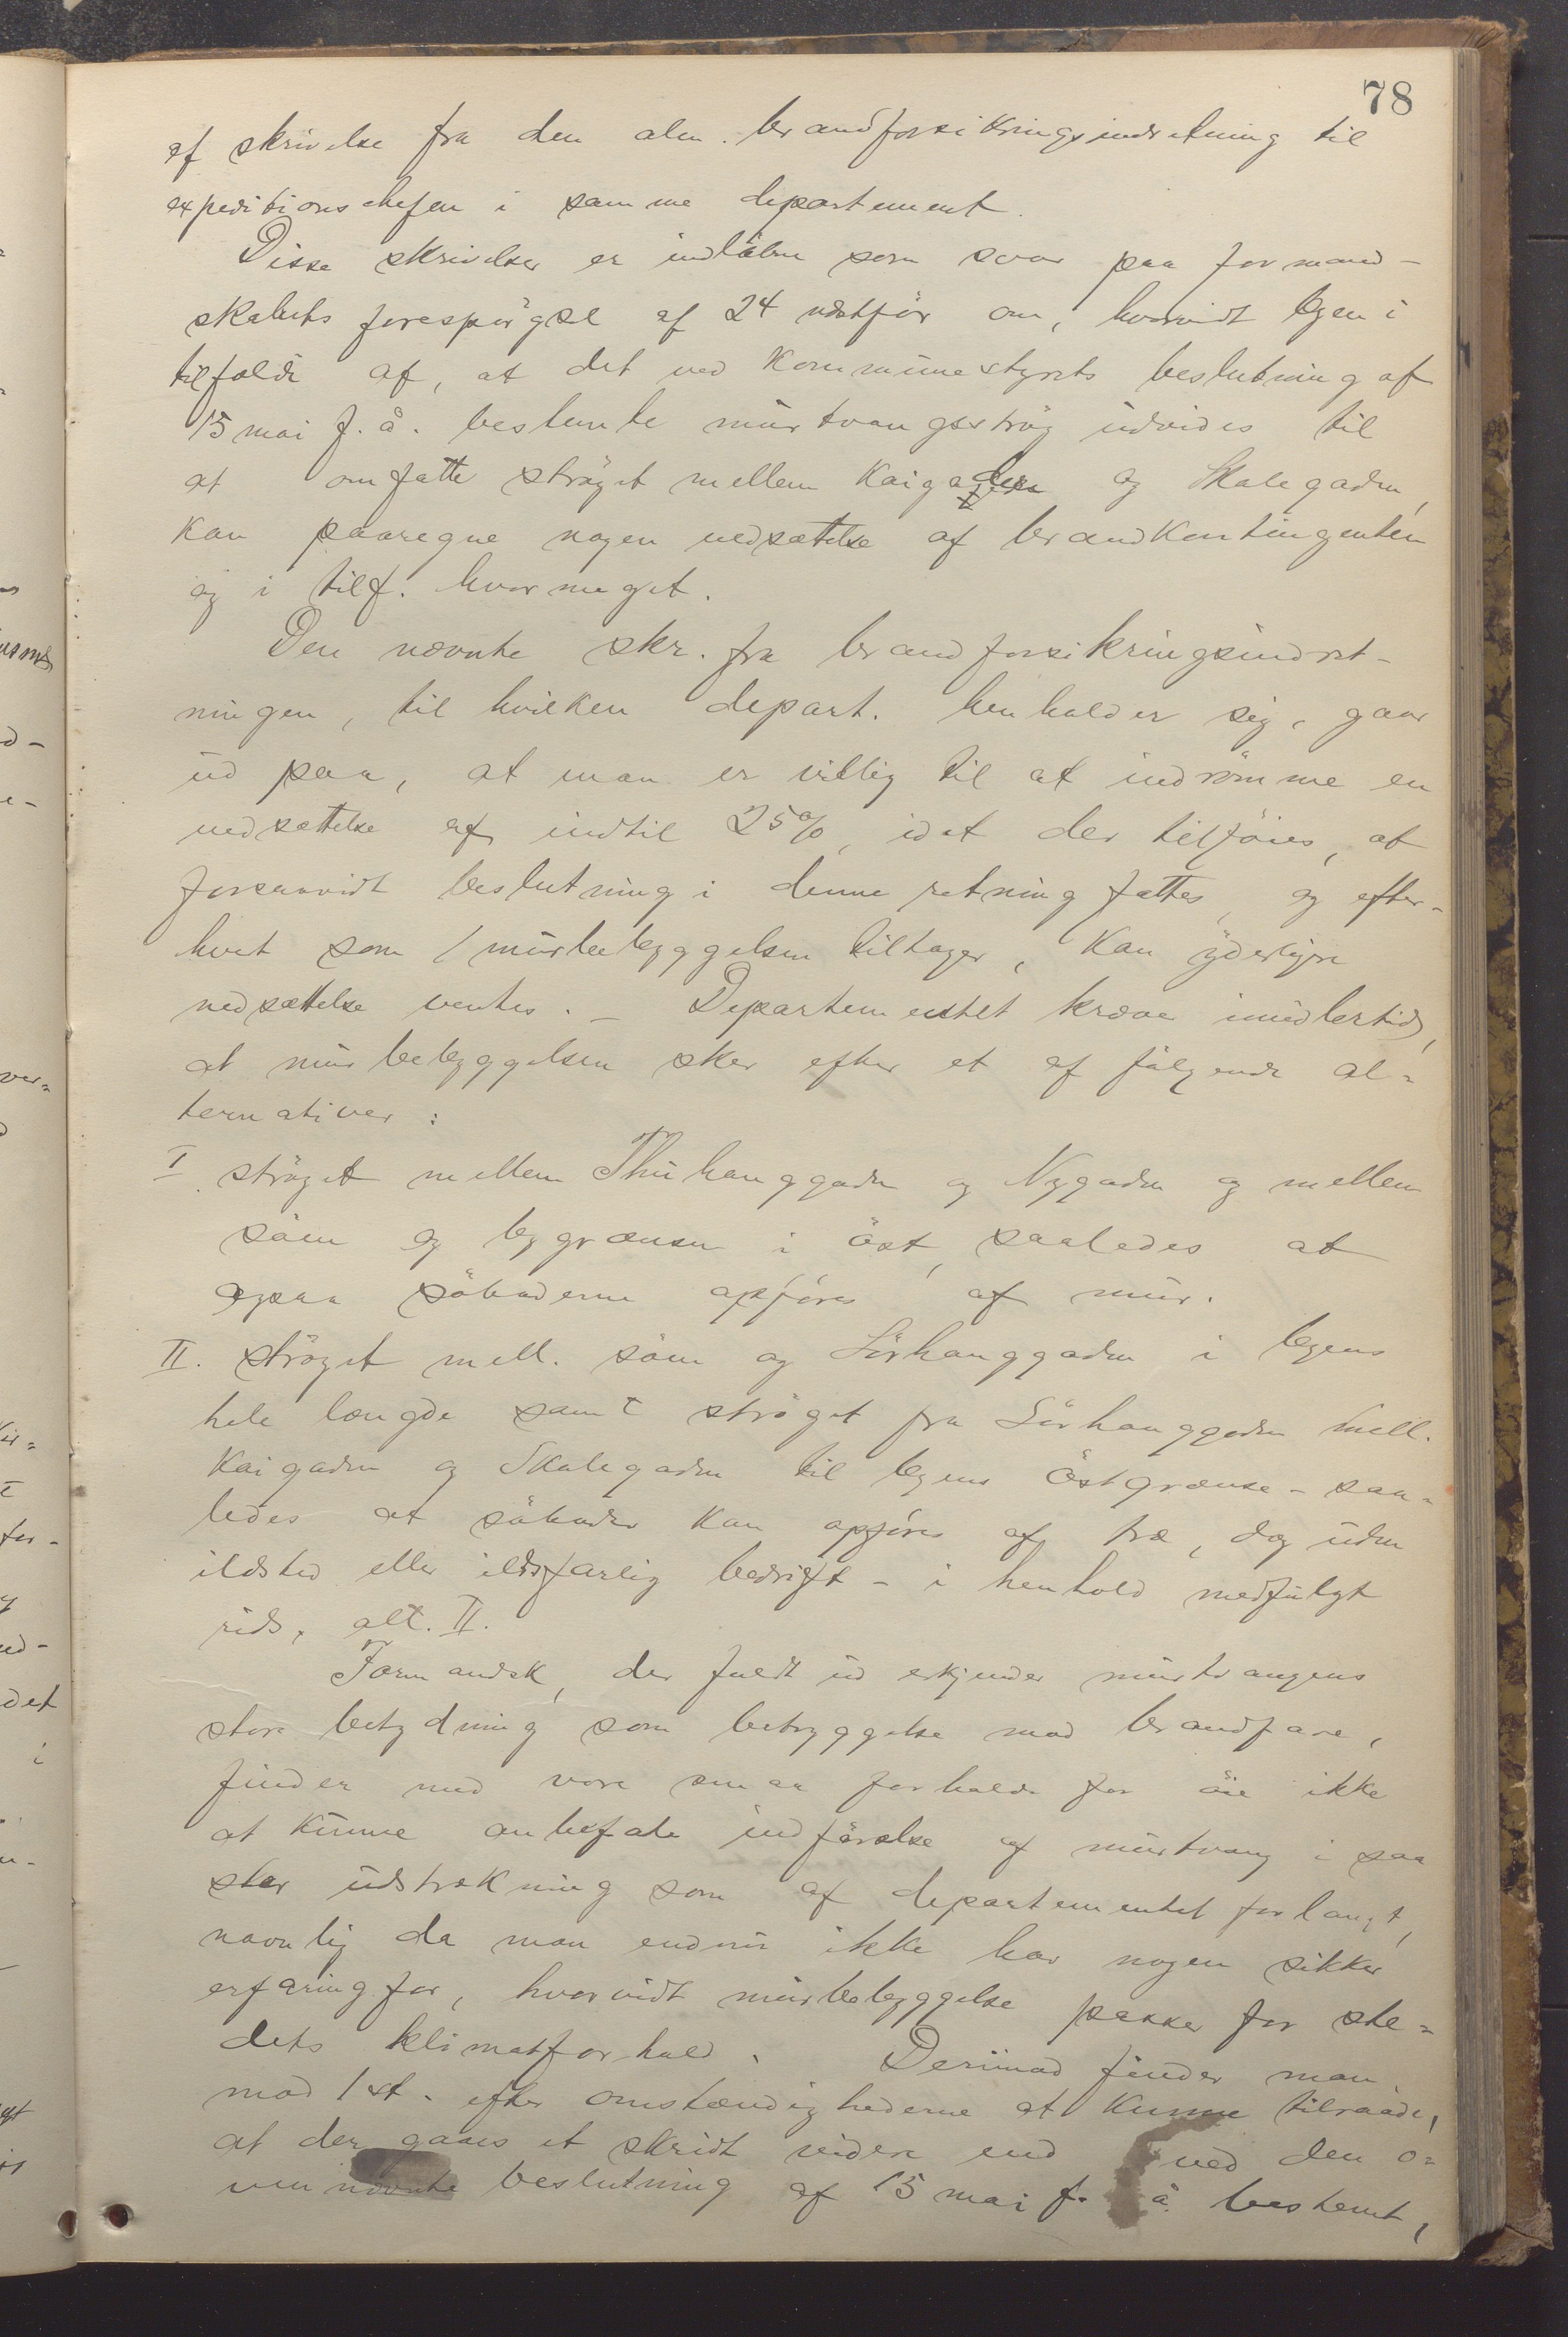 78
af skrivelse fra den alm. brandforsikringsindretning til
expeditionschefen i samme departement.
Disse skrivelser er indløbne som svar paa formand-
skabets forespørgsel af 24 næstfør om, hvorvidt byen i
tilfælde af, at det ved kommunestyrets beslutning af
15 mai f. å. bestemte murtvangsstrøg udvides til
at omfatte strøget mellem Kaigaden og Skalegaden,
kan paaregne nogen nedsættelse af brandkontingenten
og i tilf. hvormeget.
Den nævnte skr. fra brandforsikringsindret-
ningen, til hvilken depart. henholder sig, gaar
ud paa, at man er villig til at indrømme en
nedsættelse af indtil 25%, idet der tilføies, at
forsaavidt beslutning i denne retning fattes, og efter-
hvert som murbebyggelsen tiltager, kan yderligere
nedsættelse ventes. – Departementet kræver imidlertid,
at murbebyggelsen sker efter et af følgende al-
ternativer:
I. strøget mellem Thuhauggaden og Nygaden og mellem
søen og bygrænsen i øst, saaledes at
ogsaa søboderne opføres af mur.
II. strøget mell. søen og Sørhauggaden i byens
hele længde samt strøget fra Sørhauggaden mell.
Kaigaden og Skalegaden til byens østgrænse – saa-
ledes at søboder kan opføres af træ, dog uden
ildsted eller ildsfarlig bedrift – i henhold medfulgt
rids, alt. II.
Formandsk, der fuldt ud erkjender murtvangens
store betydning som betryggelse mod brandfare,
finder med vore smaa forholde for øie ikke
at kunne anbefale indførelse af murtvang i saa
stor udstrækning som af departementet forlangt,
navnlig da man endnu ikke har nogen sikker
erfaring for, hvorvidt murbebyggelse passer for ste-
dets klimatforhold. Derimod finder man
mod 1 st. efter omstændighederne at kunne tilraade,
at der gaaes et skridt videre end ved den o-
vennævnte beslutning af 15 mai f. å. bestemt,